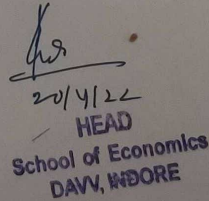 20/4/22
HEAD
School of Economics
DAVV, INDORE